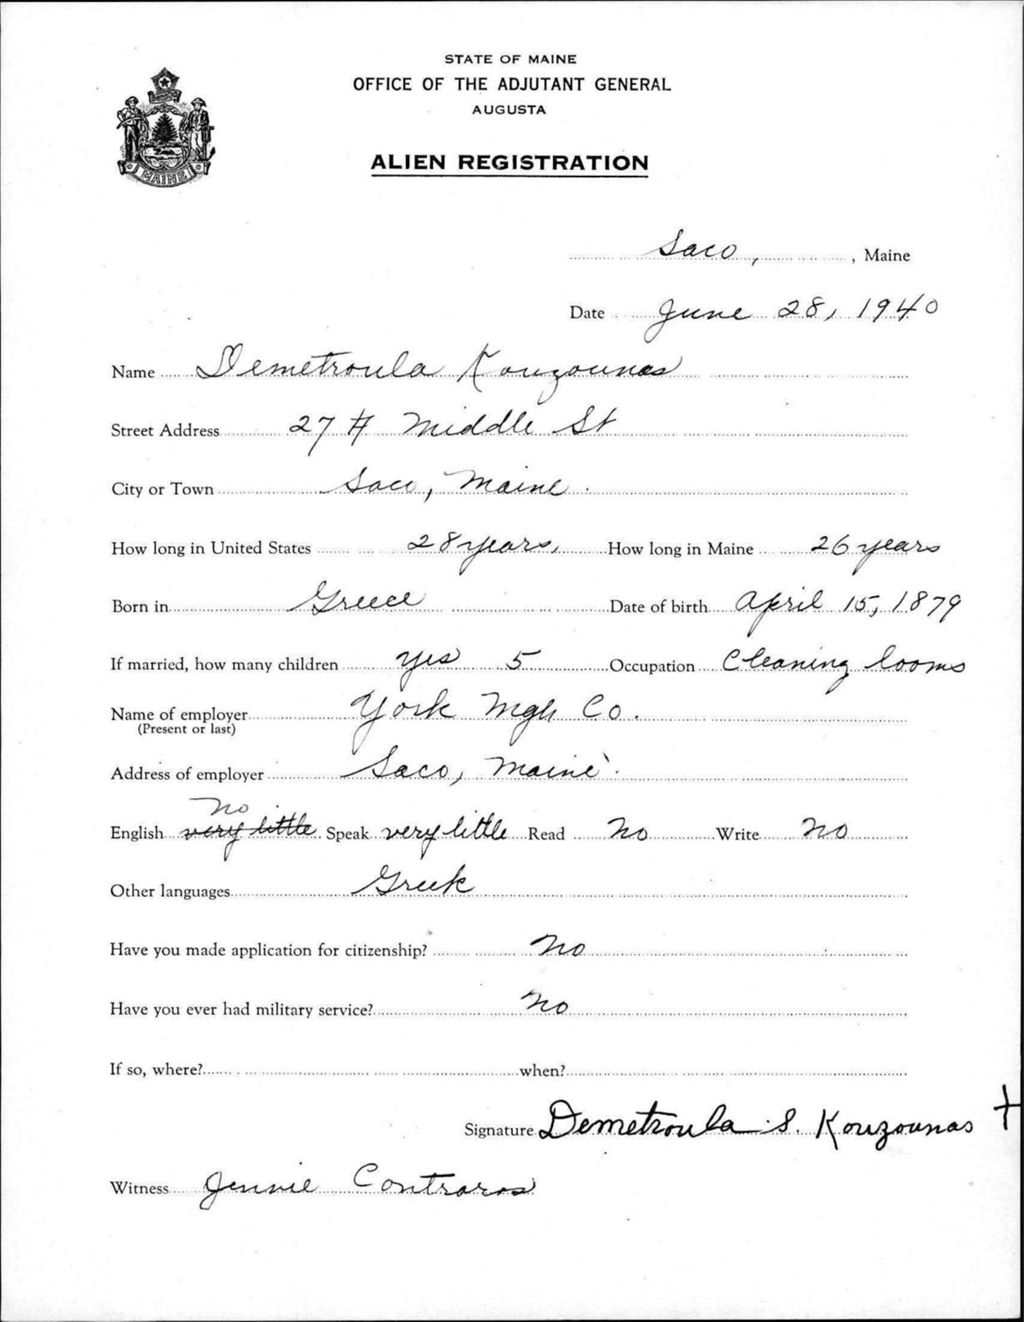 STATE OF MAINE
OFFICE OF THE ADJUTANT GENERAL
AUGUSTA
ALIEN REGISTRATION
MAINE
Saco, , Maine
Date June 28, 1940
Name Demetroula Kouzounas
Street Address 27 # Middle St
City or Town Saco, Maine.
How long in United States 28 years, How long in Maine 26 years
Born in Greece Date of birth April 15, 1879
If married, how many children yes 5 Occupation Cleaning looms
Name of employer York Mfg Co.
(Present or last)
Address of employer Saco, Maine.
No
English very little Speak very little Read No Write No
Other languages Greek
Have you made application for citizenship? No
Have you ever had military service? No
If so, where? when?
Signature Demetroula S. Kouzounas +
Witness Jennie Contraros